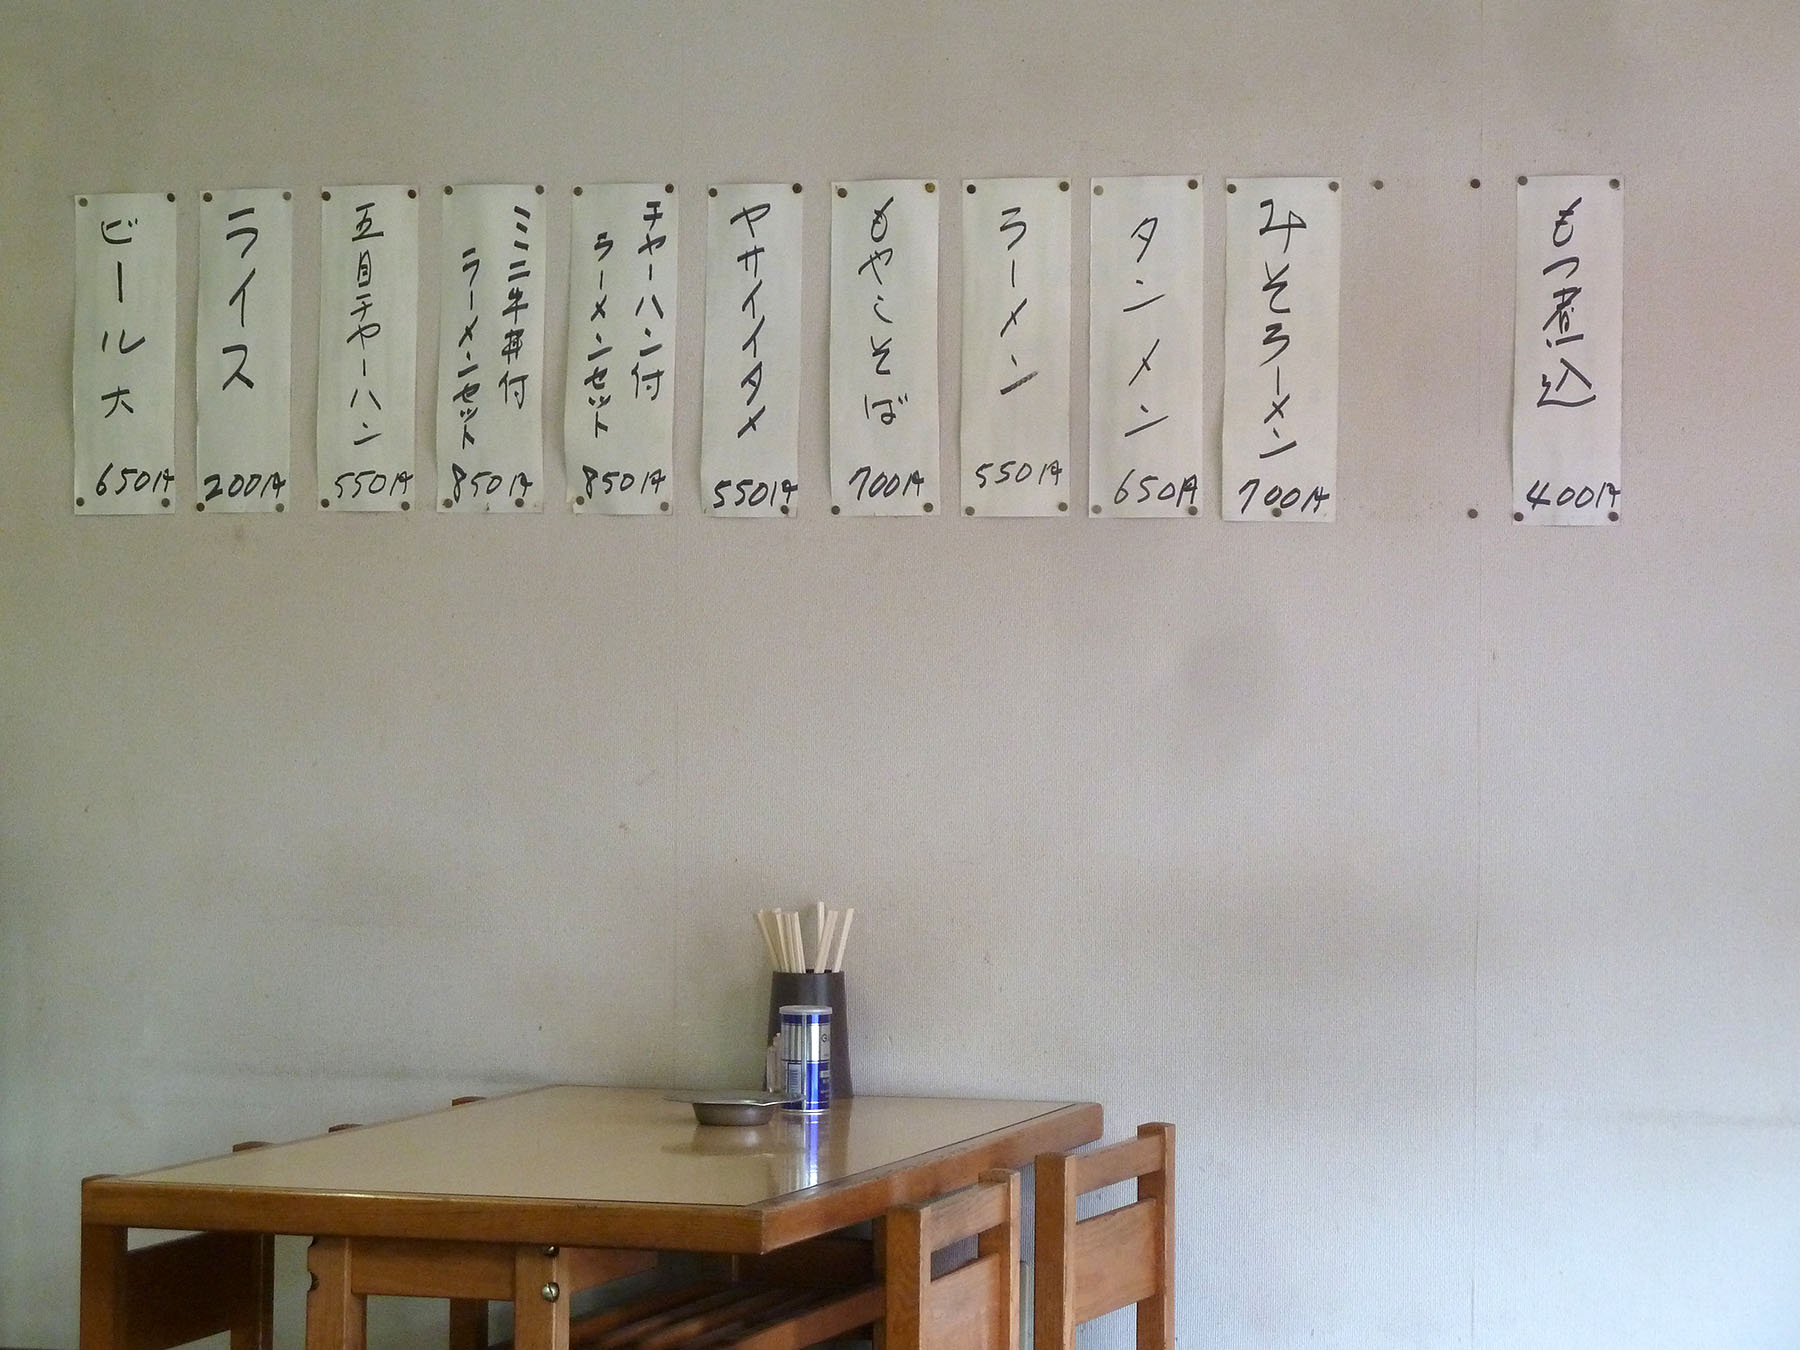 もつ煮込
400円
みそラーメン
700円
タンメン
650円
ラーメン
550円
もやしそば
700円
ヤサイイタメ
550円
チャーハン付
ラーメンセット
850円
ミニ牛丼付
ラーメンセット
850円
五目チャーハン
550円
ライス
200円
ビール大
650円